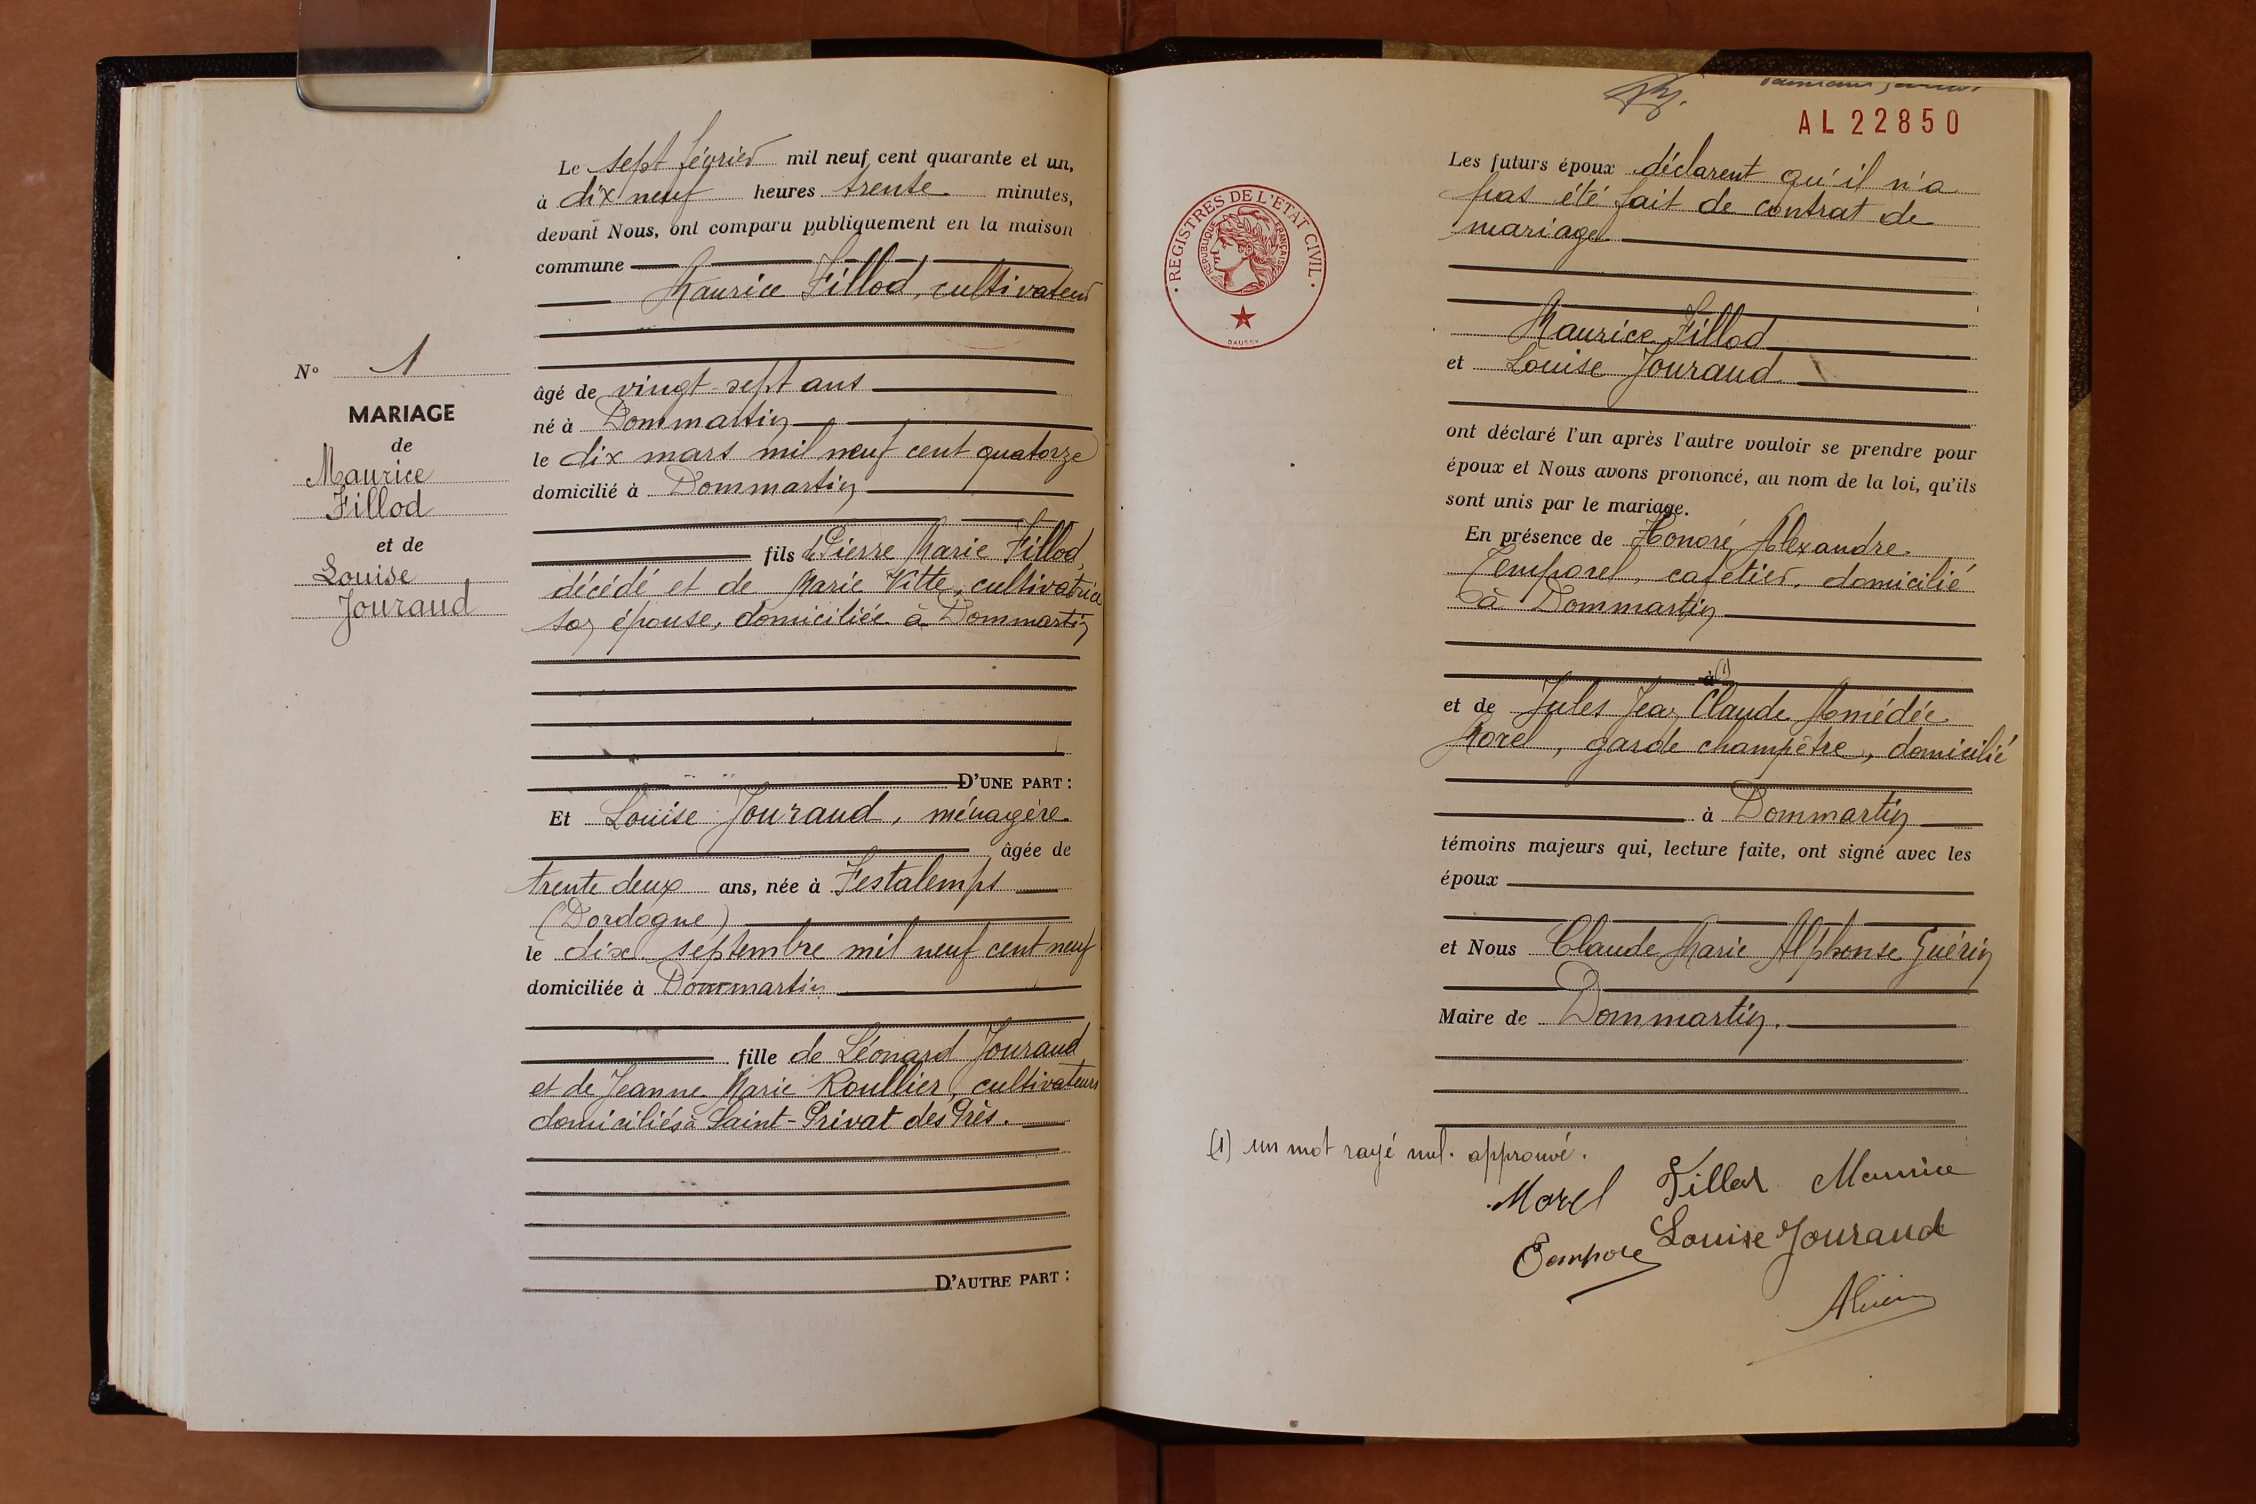 Le sept février mil neuf cent quarante et un,
à dix neuf heures trente minutes,
devant Nous, ont comparu publiquement en la maison
commune
Maurice Fillod, cultivateur
âgé de vingt-sept ans
né à Dommartin
le dix mars mil neuf cent quatorze
domicilié à Dommartin
fils de Pierre Marie Fillod,
décédé et de Marie Vitte, cultivatrice
son épouse, domiciliée à Dommartin
D'UNE PART :
Et Louise Jouraud, ménagère
âgée de
trente deux ans, née à Festalemps
(Dordogne)
le dix septembre mil neuf cent neuf
domiciliée à Dommartin
fille de Léonard Jouraud
et de Jeanne Marie Roullier, cultivateurs
domiciliés à Saint-Privat des Près.
D'AUTRE PART :
N° 1
MARIAGE
de
Maurice
Fillod
et de
Louise
Jouraud
AL 22850
REGISTRES DE L'ETAT CIVIL
REPUBLIQUE FRANÇAISE
DAUSSY
Les futurs époux déclarent qu'il n'a
pas été fait de contrat de
mariage
Maurice Fillod
et Louise Jouraud
ont déclaré l'un après l'autre vouloir se prendre pour
époux et Nous avons prononcé, au nom de la loi, qu'ils
sont unis par le mariage.
En présence de Honoré Alexandre
Temporel, cafetier, domicilié
à Dommartin
à (1)
et de Jules Jean Claude Amédée
Morel, garde champêtre, domicilié
à Dommartin
témoins majeurs qui, lecture faite, ont signé avec les
époux
et Nous Claude Marie Alphonse Guérin
Maire de Dommartin.
(1) un mot rayé nul. approuvé.
Morel Fillod Maurice
Louise Jouraud